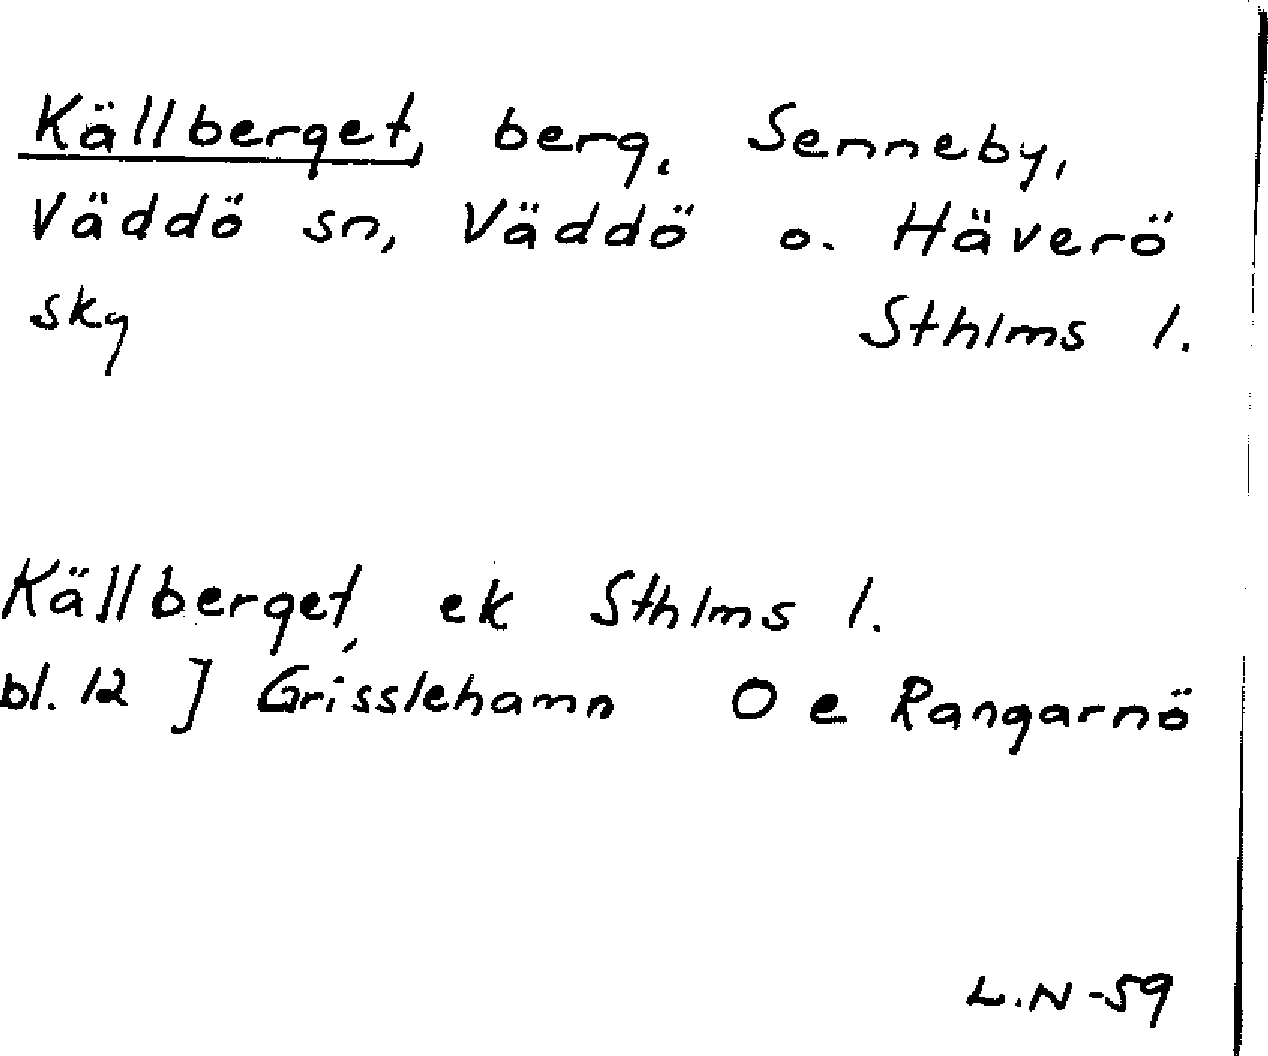 Källberget, berg, Senneby,
Väddö sn, Väddö o. Häverö
skg Sthlms l.
Källberget, ek Sthlms l.
bl. 12 J Grisslehamn O e Rangarnö
L.N -59